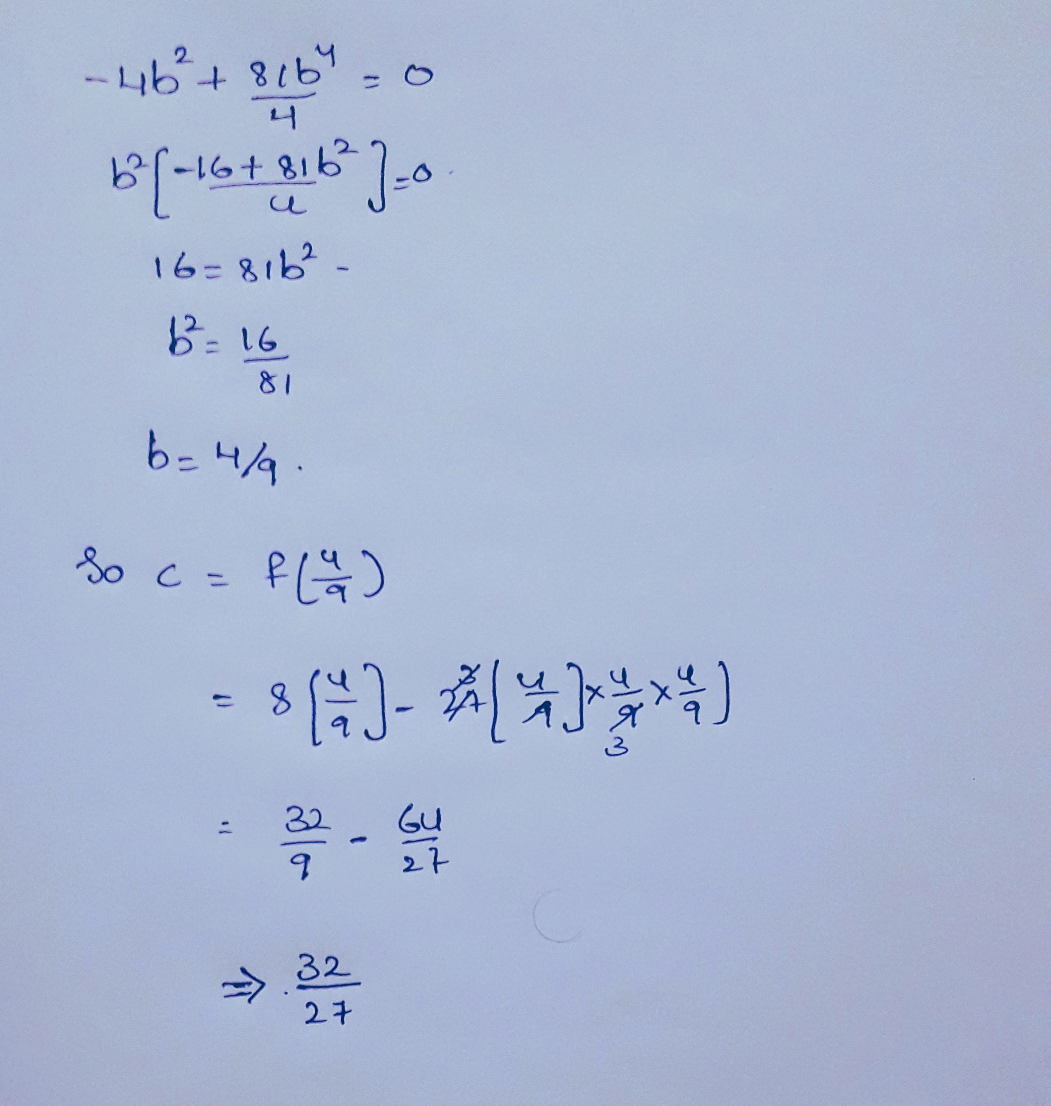 -4b² + 81b⁴/4 = 0
b²[-16 + 81b²/4] = 0.
16 = 81b² -
b² = 16/81
b = 4/9.
So c = f(4/9)
= 8(4/9] - 27[4/9]×4/9×4/9) 3 3
= 32/9 - 64/27
⇒ . 32/27